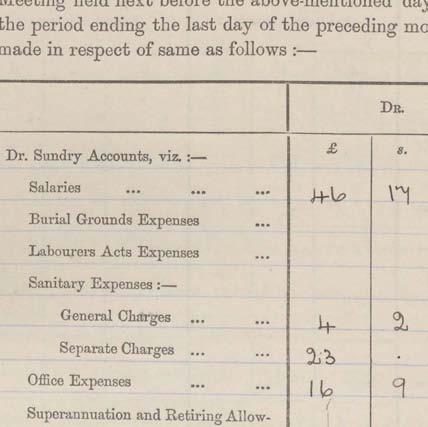 Meeting held next before the above-mentioned day
the period ending the last day of the preceding mo
made in respect of same as follows :—
DR.
Dr. Sundry Accounts, viz. :— £ s.
Salaries ... ... ... 46 17
Burial Grounds Expenses ...
Labourers Acts Expenses ...
Sanitary Expenses :—
General Charges ... ... 4 2
Separate Charges ... ... 23 .
Office Expenses ... ... 16 9
Superannuation and Retiring Allow-